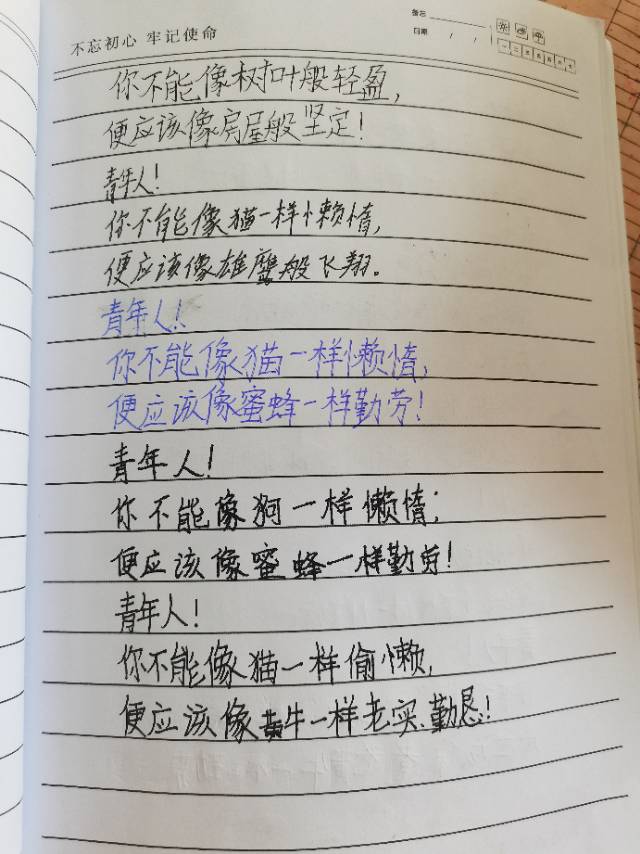 不忘初心 牢记使命
备忘
日期 / /
一 二 三 四 五 六 七
你不能像树叶般轻盈,
便应该像房屋般坚定!
青年人!
你不能像猫一样懒惰,
便应该像雄鹰般飞翔。
青年人!
你不能像猫一样懒惰,
便应该像蜜蜂一样勤劳!
青年人!
你不能像狗一样懒惰;
便应该像蜜蜂一样勤劳!
青年人!
你不能像猫一样偷懒,
便应该像黄牛一样老实、勤恳!